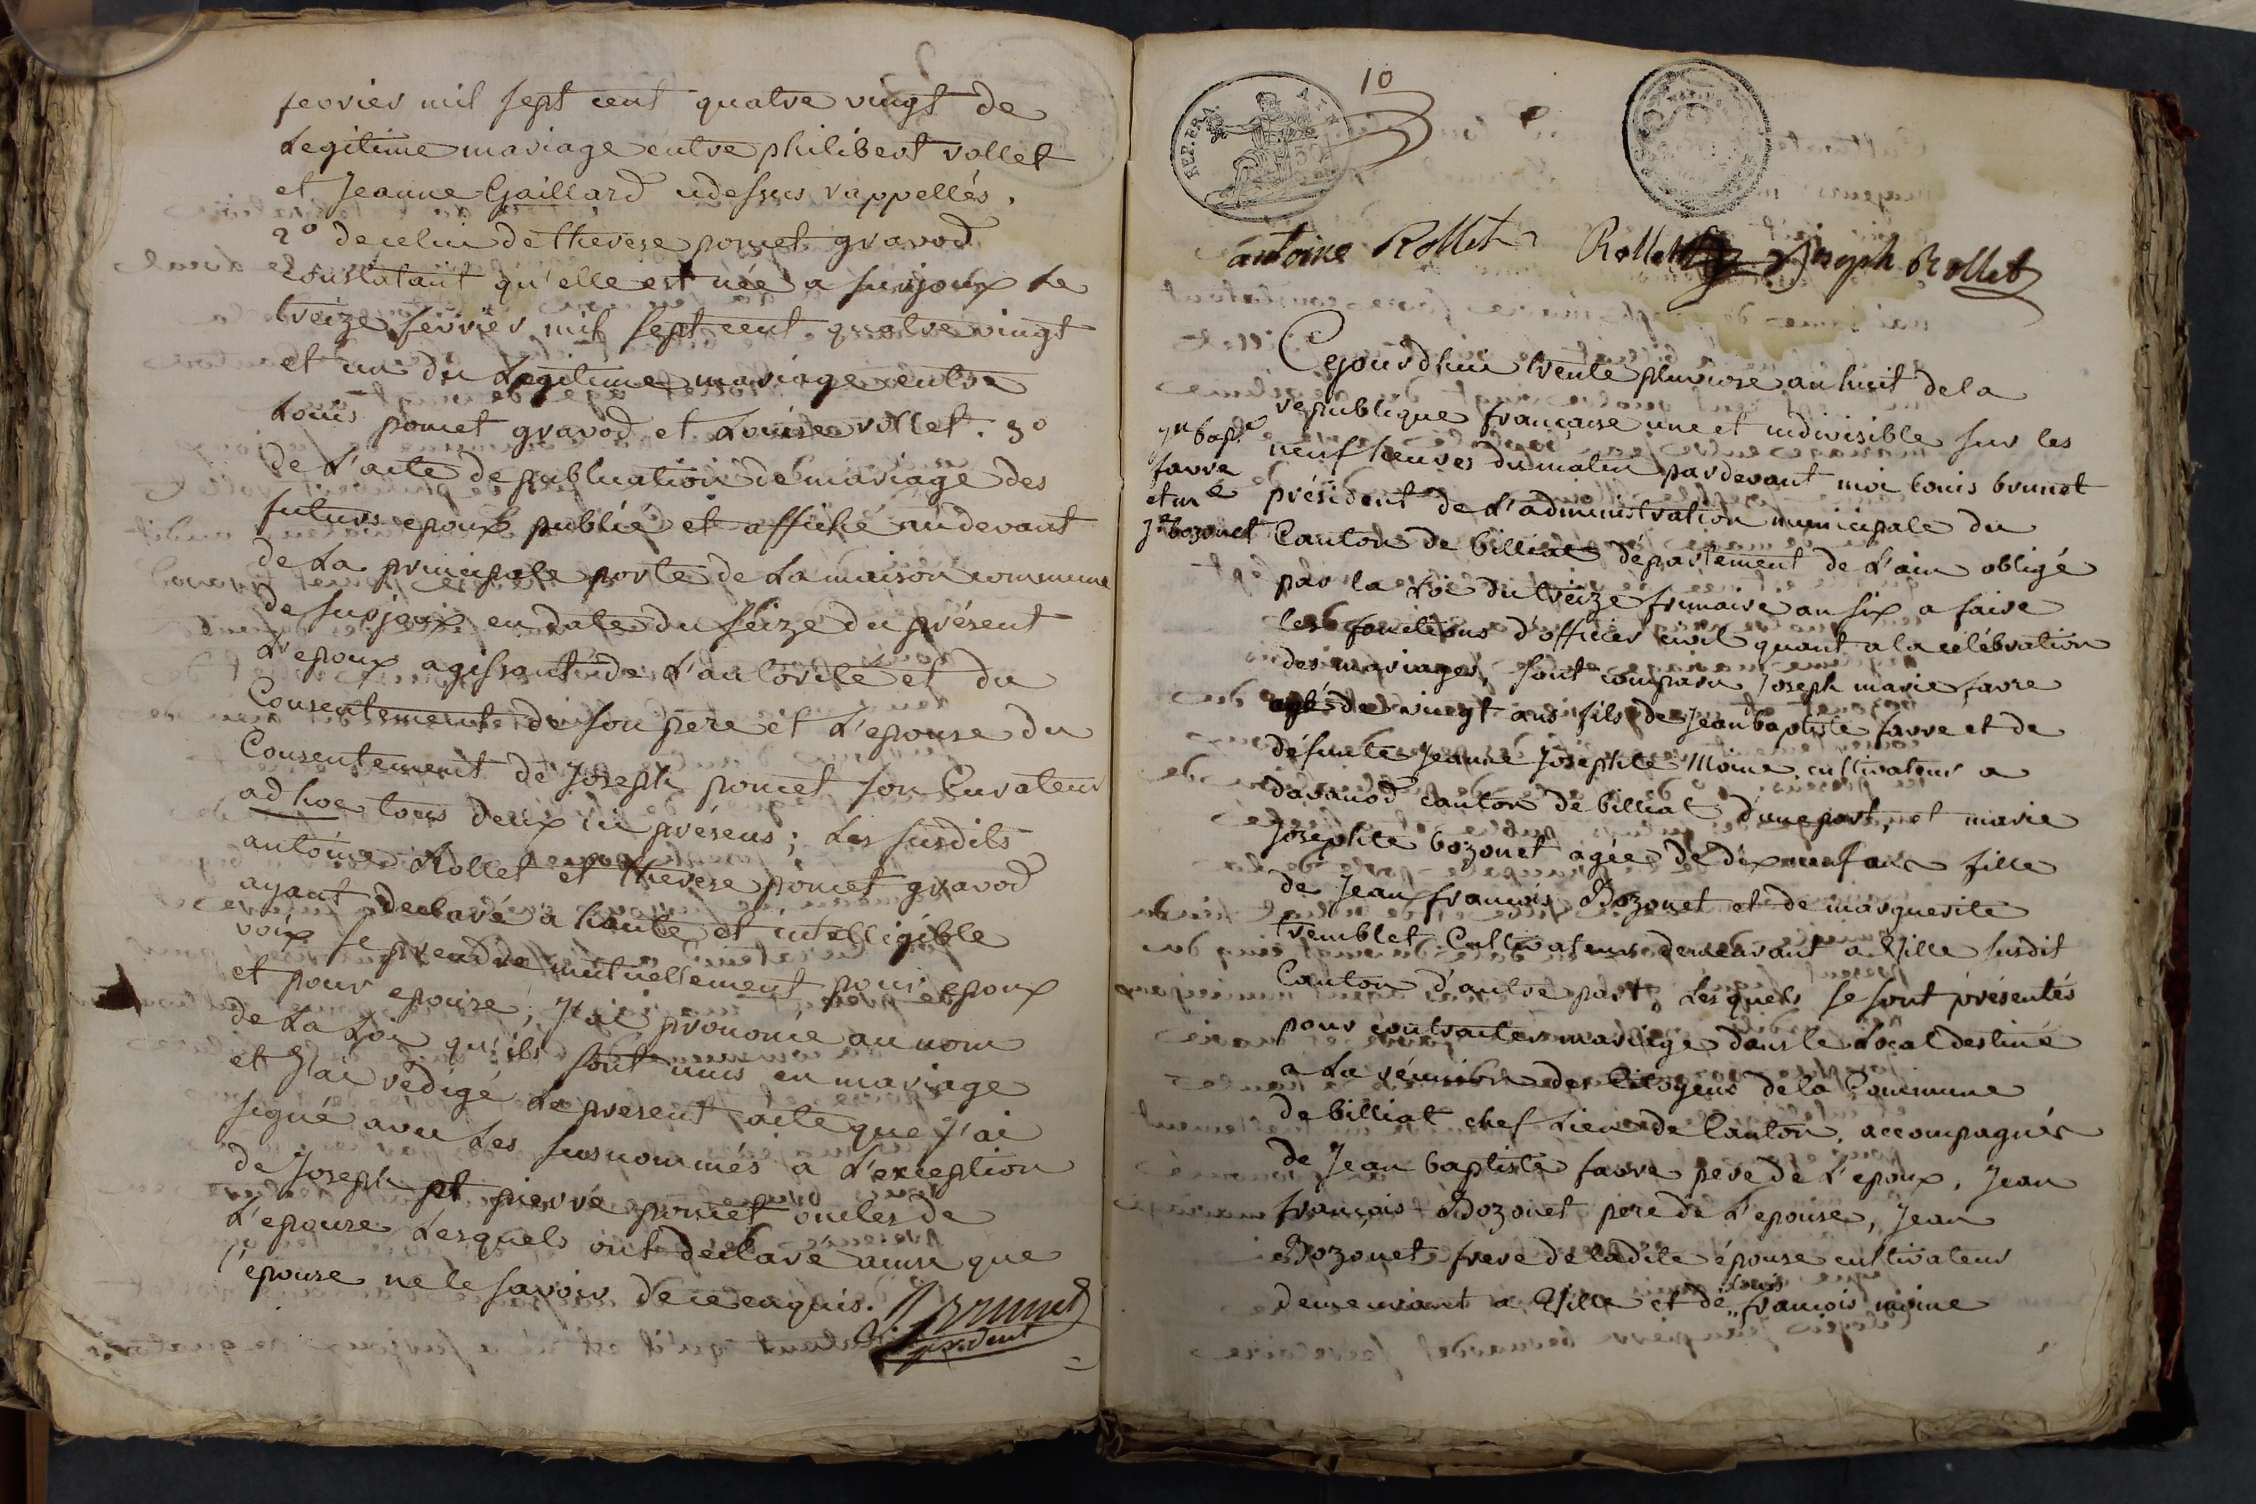 fevrier mil sept cent quatre vingt de
Legitime mariage entre philibert rollet
et Jeanne Gaillard cidessus rappellés.
2° decelui de thereze poncet gravod
constatant qu'elle est née a surjoux le
treize fevrier mil sept cent quatre vingt
et un du Legitime mariage entre
Louis poncet gravod et Louise rollet. 3°
de L'acte de publication de mariage des
futurs epoux publié et affiché audevant
de La principale porte de La maison commune
de surjoux en date du seize du présent
L'epoux agissant de L'autorité et du
Consentement de son pere et L'epouse du
Consentement de Joseph poncet son Curateur
ad hoc tous deux ici présens; Les susdits
antoine Rollet et thereze poncet gravod
ayant declaré a haute et intelligible
voix se prendre mutuellement pour epoux
et pour epouse; J'ai prononcé au nom
de La Loi qu'ils sont unis en mariage
et J'ai rédigé Le present acte que J'ai
signé avec Les susnommés a L'exception
de Joseph et pierre poncet oncles de
L'epouse Lesquels ont déclaré ainsi que
l'épouse ne le savoir de ce enquis.
L Brunet
président
10
REP. FRA.
antoine Rollet Rollet Joseph Rollet
Cejourdhui trente pluviose an huit de la
republique française une et indivisible sur les
neuf heures du matin pardevant moi louis brunet
président de L'administration municipale du
Canton de billiat département de L'ain obligé
par la Loi du treize frimaire an six a faire
les fonctions d'officier civil quant a la célébration
des mariages, sont comparu Joseph marie favre
agé de vingt ans fils de Jean baptiste favre et de
défunte Jeanne Josephte Moine cultivateur a
davanod canton de billiat d'une part, et marie
Josephte bozonet agée de dix neuf ans fille
de Jean françois Bozonet et de marguerite
tremblet Cultivateurs demeurant a Ville susdit
Canton d'autre part, Lesquels se sont présentés
pour contracter mariage dans le Local destiné
a La réunion des Citoyens de la Commune
de billiat chef Lieu de Canton, accompagnés
de Jean baptiste favre pere de L'epoux, Jean
françois Bozonet pere de L'epouse, Jean
Bozonet frere de ladite épouse cultivateur
demeurant a Ville et de Louis françois moine
Jn bapte
favre
et m e
Jte bozonet